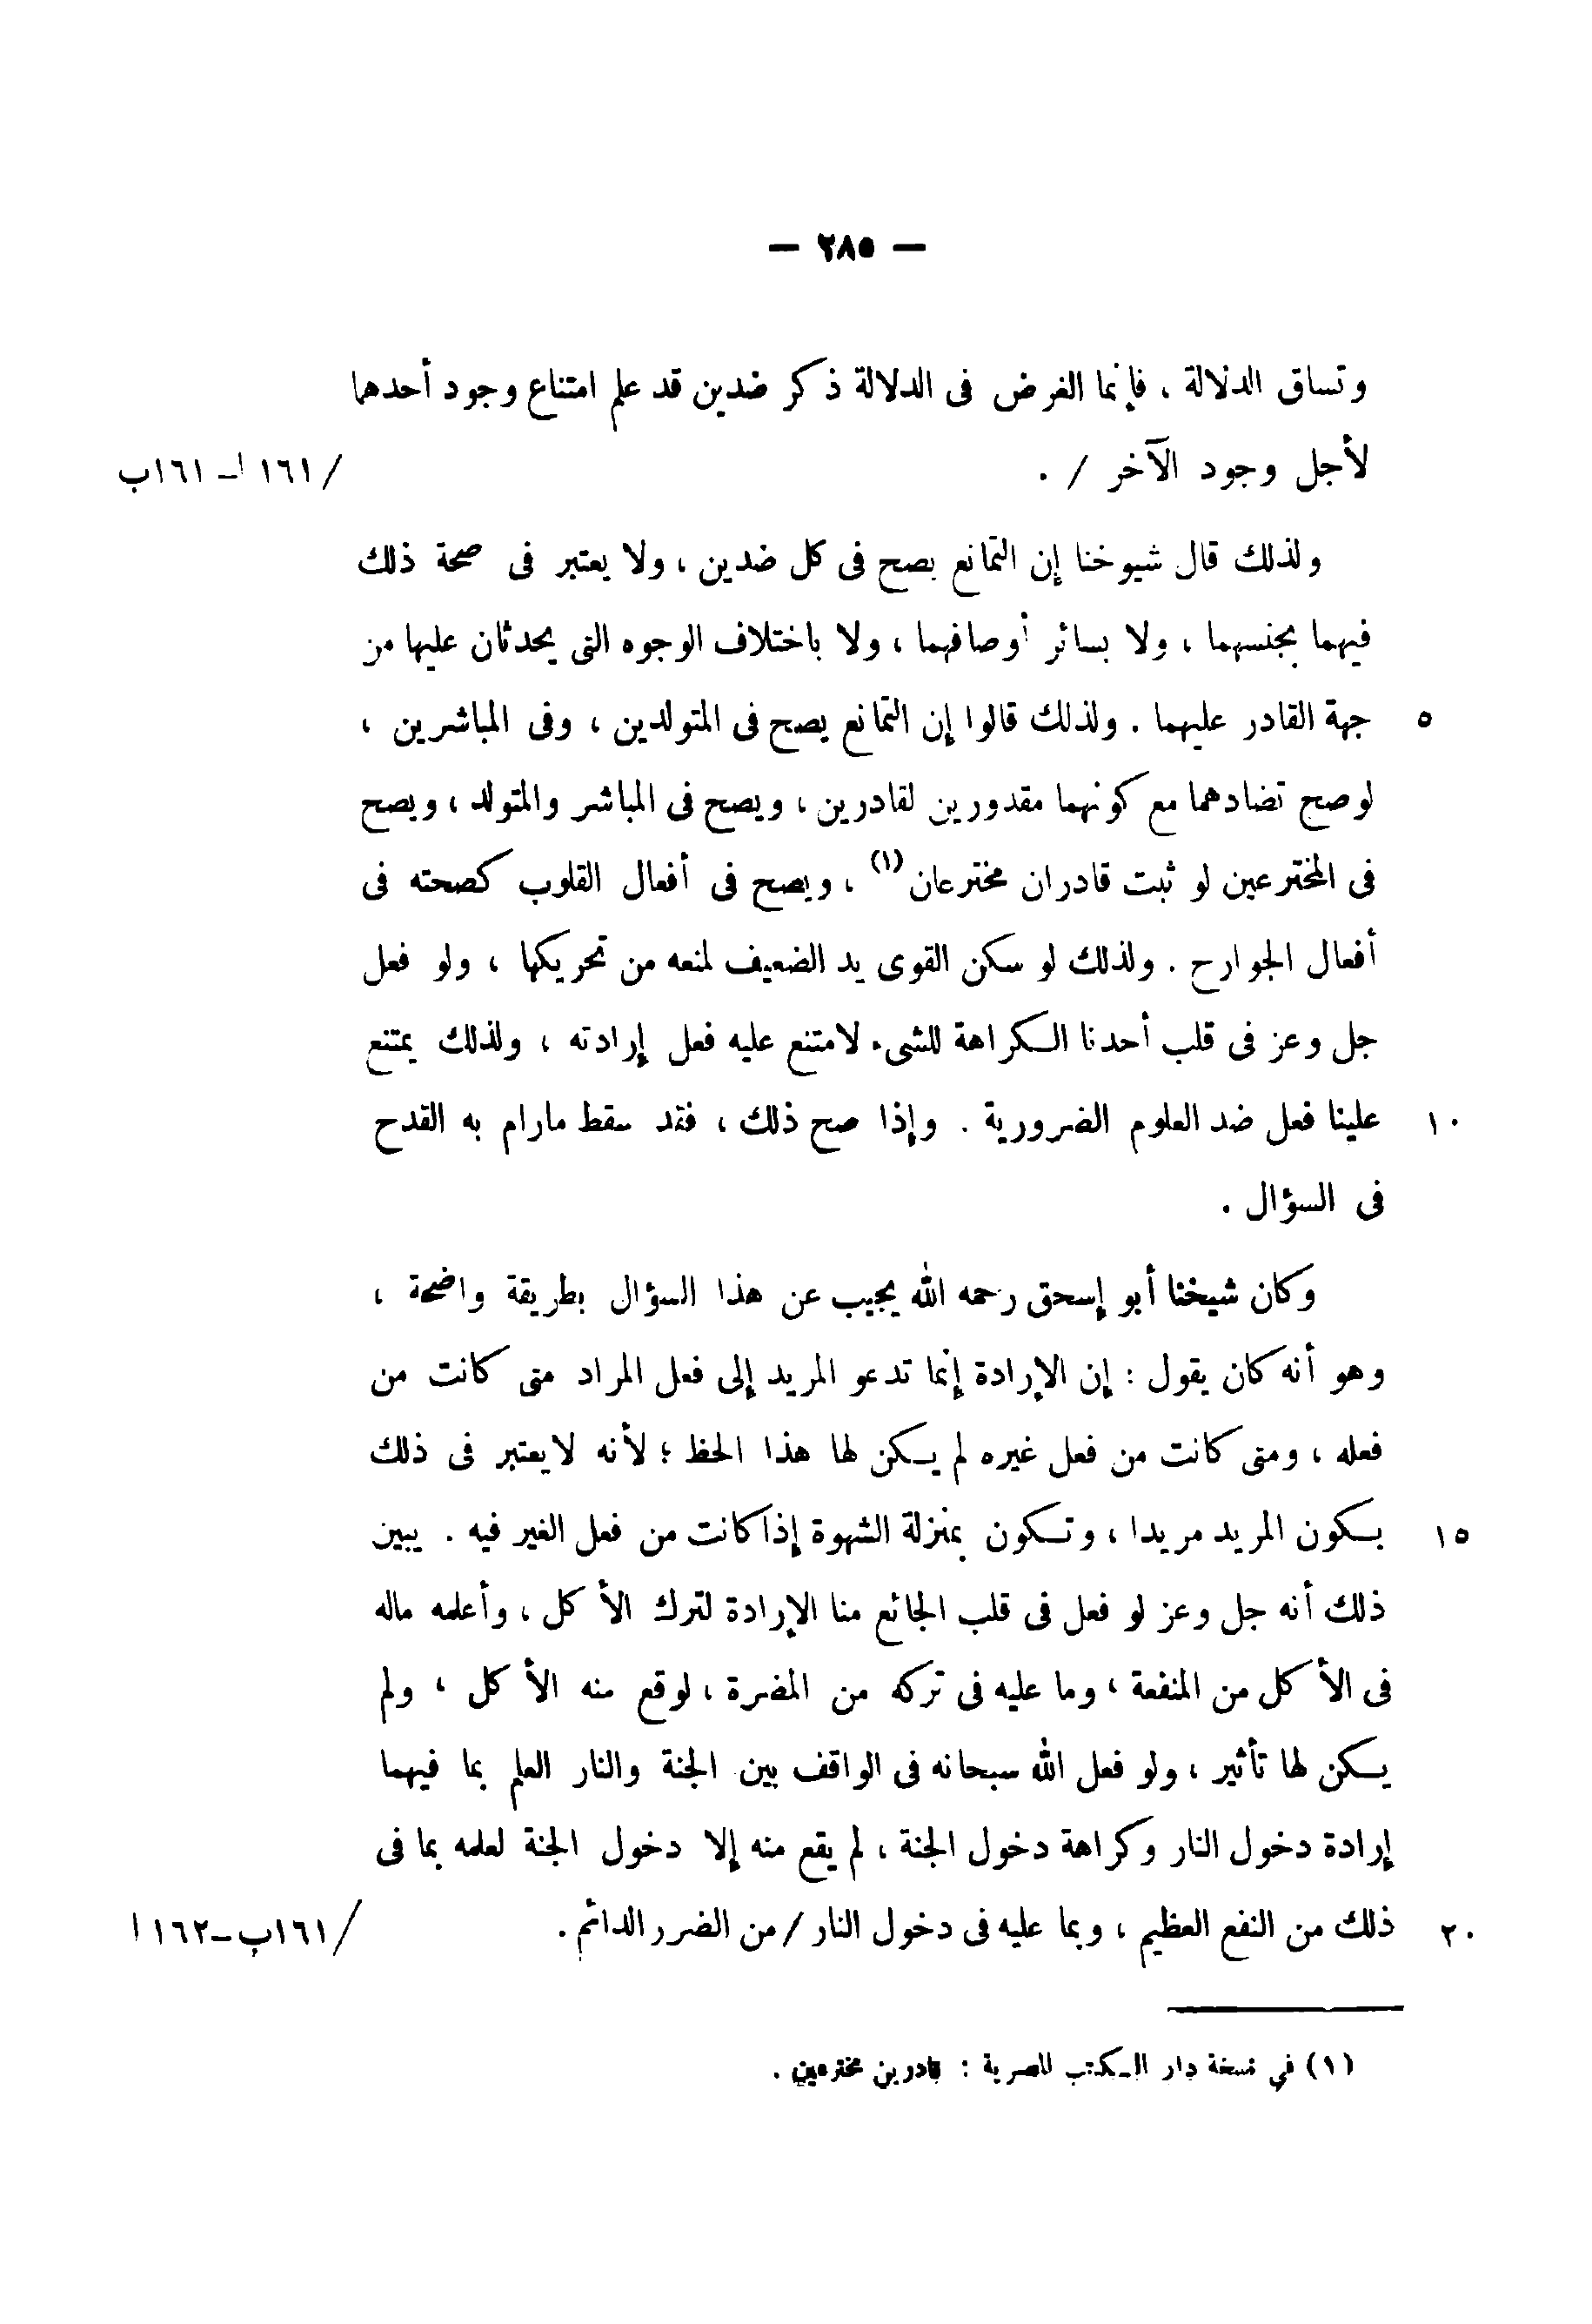 — ٢٨٥ —
وتساق الدلالة ، فإنما الغرض فى الدلالة ذكر ضدين قد علم امتناع وجود أحدهما
لأجل وجود الآخر / .
/١٦١ ا ـ ١٦١ب
ولذلك قال شيوخنا إن التمانع يصح فى كل ضدين ، ولا يعتبر فى صحة ذلك
فيهما بجنسهما ، ولا بسائر أوصافهما ، ولا باختلاف الوجوه التى يحدثان عليها من
٥ جهة القادر عليهما . ولذلك قالوا إن التمانع يصح فى المتولدين ، وفى المباشرين ،
لو صح تضادهما مع كونهما مقدورين لقادرين ، ويصح فى المباشر والمتولد ، ويصح
فى المخترعين لو ثبت قادران مخترعان (١) ، ويصح فى أفعال القلوب كصحته فى
أفعال الجوارح . ولذلك لو سكن القوى يد الضعيف لمنعه من تحريكها ، ولو فعل
جل وعز فى قلب أحدنا الكراهة للشىء لامتنع عليه فعل إرادته ، ولذلك يمتنع
١٠ علينا فعل ضد العلوم الضرورية . وإذا صح ذلك ، فقد سقط مارام به القدح
فى السؤال .
وكان شيخنا أبو إسحق رحمه الله يجيب عن هذا السؤال بطريقة واضحة ،
وهو أنه كان يقول : إن الإرادة إنما تدعو المريد إلى فعل المراد متى كانت من
فعله ، ومتى كانت من فعل غيره لم يكن لها هذا الحظ ؛ لأنه لايعتبر فى ذلك
١٥ بكون المريد مريدا ، وتكون بمنزلة الشهوة إذا كانت من فعل الغير فيه . يبين
ذلك أنه جل وعز لو فعل فى قلب الجائع منا الإرادة لترك الأكل ، وأعلمه ماله
فى الأكل من المنفعة ، وما عليه فى تركه من المضرة ، لوقع منه الأكل ، ولم
يكن لها تأثير ، ولو فعل الله سبحانه فى الواقف بين الجنة والنار العلم بما فيهما
إرادة دخول النار وكراهة دخول الجنة ، لم يقع منه إلا دخول الجنة لعلمه بما فى
٢٠ ذلك من النفع العظيم ، وبما عليه فى دخول النار / من الضرر الدائم .
/١٦١ب ـ ١٦٢ ا
(١) في نسخة دار الكتب المصرية : قادرين مخترعين .